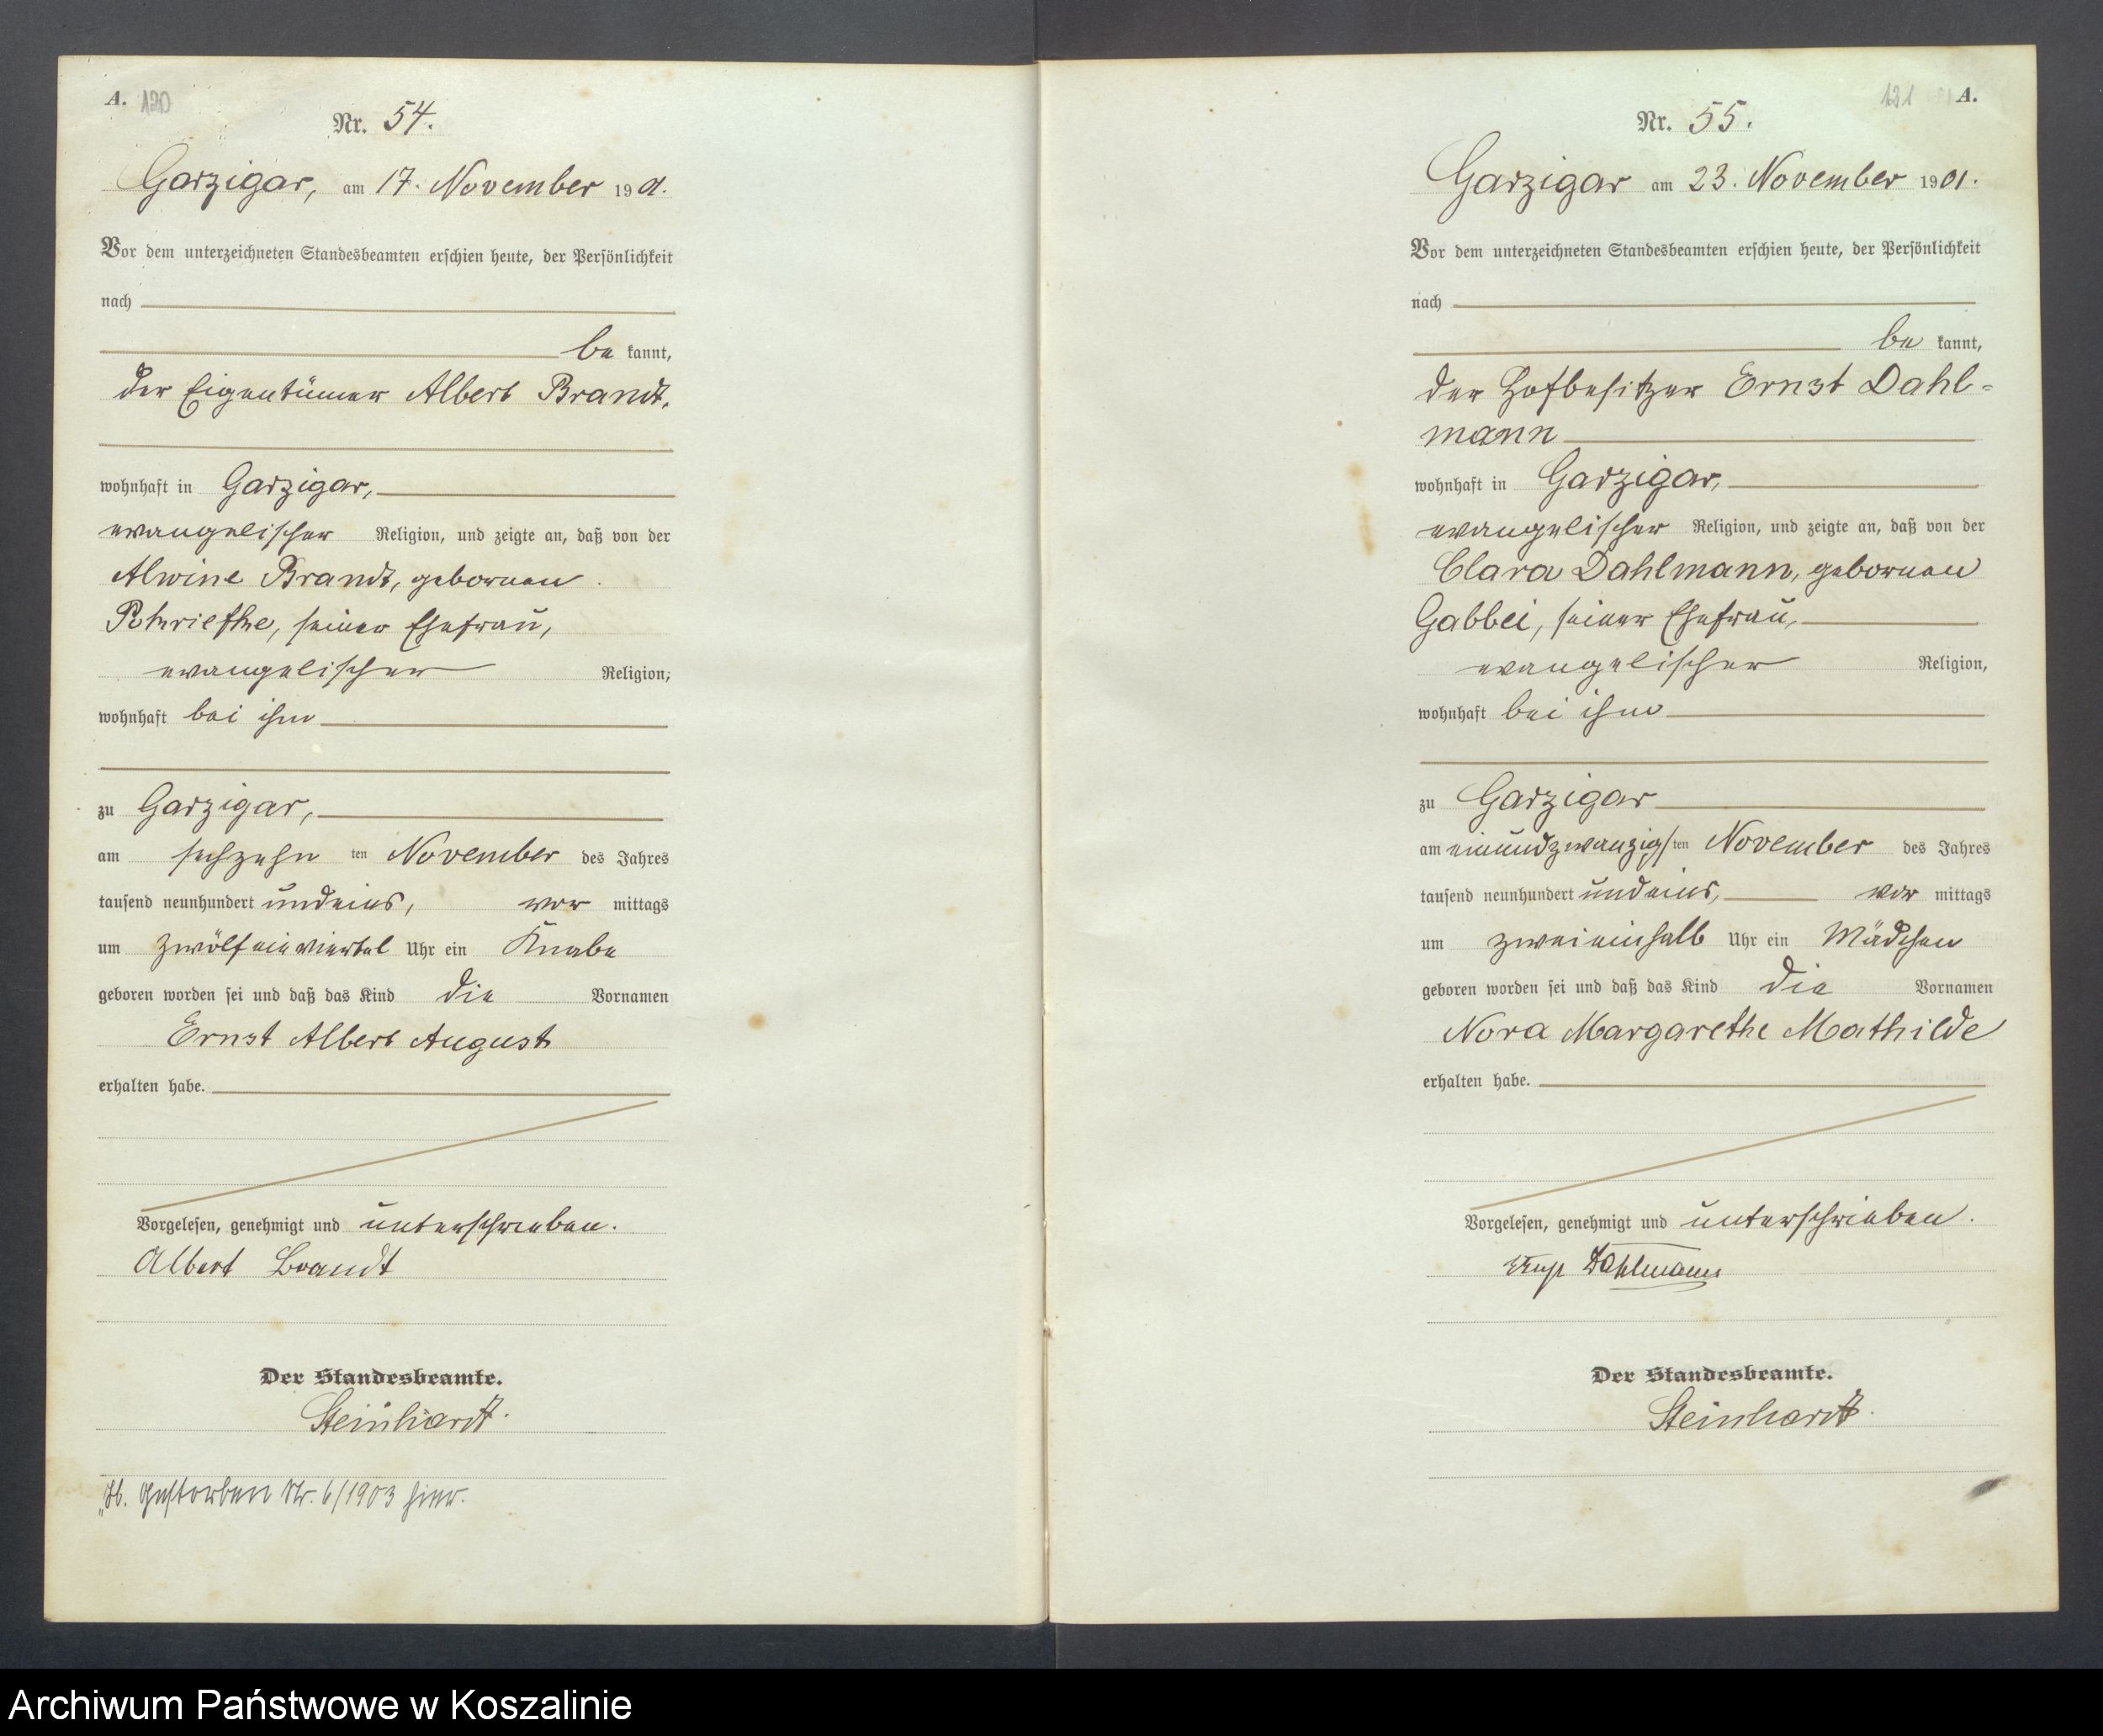 A. 120
Nr. 54.
Garzigar, am 17. November 1901.
Vor dem unterzeichneten Standesbeamten erschien heute, der Persönlichkeit
nach
be kannt,
der Eigentümer Albert Brandt,
wohnhaft in Garzigar,
evangelischer Religion, und zeigte an, daß von der
Alwine Brandt, gebornen
seiner Ehefrau,
evangelischer Religion,
wohnhaft bei ihm
zu Garzigar,
am sechzehn ten November des Jahres
tausend neunhundert undeins, vor mittags
um zwölfeinviertel Uhr ein Knabe
geboren worden sei und daß das Kind die Vornamen
Ernst Albert August
erhalten habe.
Vorgelesen, genehmigt und unterschrieben.
Albert Brandt
Der Standesbeamte.
Steinhardt.
Gestorben Nr. 6/1903 hier.
121 A.
Nr. 55.
Garzigar am 23. November 1901.
Vor dem unterzeichneten Standesbeamten erschien heute, der Persönlichkeit
nach
be kannt,
der Hofbesitzer Ernst Dahl-
mann
wohnhaft in Garzigar,
evangelischer Religion, und zeigte an, daß von der
Clara Dahlmann, gebornen
Gabbei, seiner Ehefrau,
evangelischer Religion,
wohnhaft bei ihm
zu Garzigar
am einundzwanzigsten November des Jahres
tausend neunhundert undeins, vor mittags
um zweieinhalb Uhr ein Mädchen
geboren worden sei und daß das Kind die Vornamen
Nora Margarethe Mathilde
erhalten habe.
Vorgelesen, genehmigt und unterschrieben.
Ernst Dahlmann
Der Standesbeamte.
Steinhardt.
Archiwum Państwowe w Koszalinie